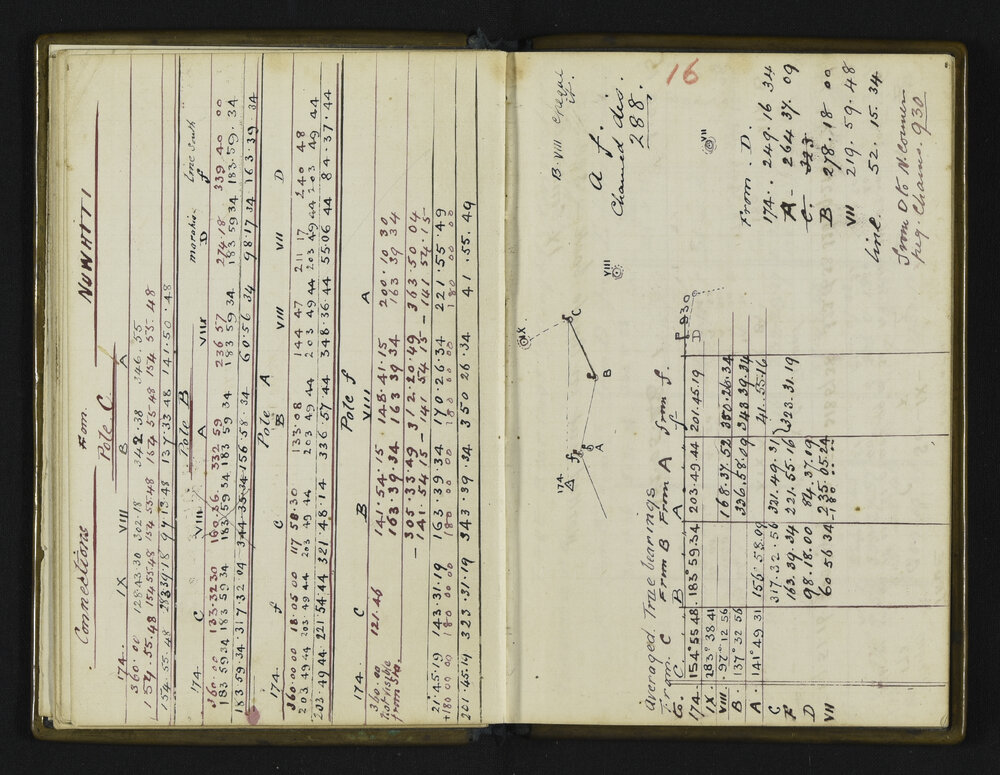 Connections From NUWHTI
Pole C
174. IX VIII B A
360.00 128.43.30 302.18 342.38 346.55
154.55.48 154.55.48 154.55.48 154.55.48 154.55.48
154.55.48 283.39.18 97.13.48 137.33.48 141.50.48
Pole B
174. C VIII A VIII D f
360.00 133.32.30 332.59 236.57 274.18 339.40.00
183.59.34 183.59.34 183.59.34 183.59.34 183.59.34 183.59.34 183.59.34
183.59.34 317.32.04 344.35.34 156.58.34 60.56.34 98.17.34 163.39.34
Pole A
174. f C B VIII VII D
360.00.00 18.05.00 117.58.30 133.08 144.47 211.17 240.48
203.49.44 203.49.44 203.49.44 203.49.44 203.49.44 203.49.44 203.49.44
203.49.44 221.54.44 321.48.14 336.57.44 348.36.44 55.06.44 84.37.44
Pole f
174. C B VIII A
360.00 121.46 141.54.15 148.41.15 200.10.30
not visible from Sta. 163.39.34 163.39.34 163.39.34
305.33.49 312.20.49 363.50.04
141.54.15 141.54.15 141.54.15
21.45.19 143.31.19 163.39.34 170.26.34 221.55.49
+180.00.00 180.00.00 180.00.00 180.00.00 180.00.00
201.45.19 323.31.19 343.39.34 350.26.34 41.55.49
16
B. VIII
A f.
Chained dis.
288.
IX
VIII
VII
174.
f
A
B
C
D
f 930
From D.
174. 249.16.34
A - 264.37.09
C. 323
B 278.18.00
VII 219.59.48
line 52.15.34
from D to N. Corner
peg. Chains. 930
averaged True bearings
From C From B From A from f.
to. C B A f D
174. 154°55.48 183°59.34 203.49.44 201.45.19
IX. 283°38.41
VIII 97°12.56 168.37.52 350.26.34
B. 137°32.56 336.58.09 343.39.34
A 141°49.31 156.58.09 41.55.16
C 317.32.56 321.49.31 323.31.19
F 163.39.34 221.55.16
D 98.18.00 84.37.09
VII 60.56.34 235.05.24
-180